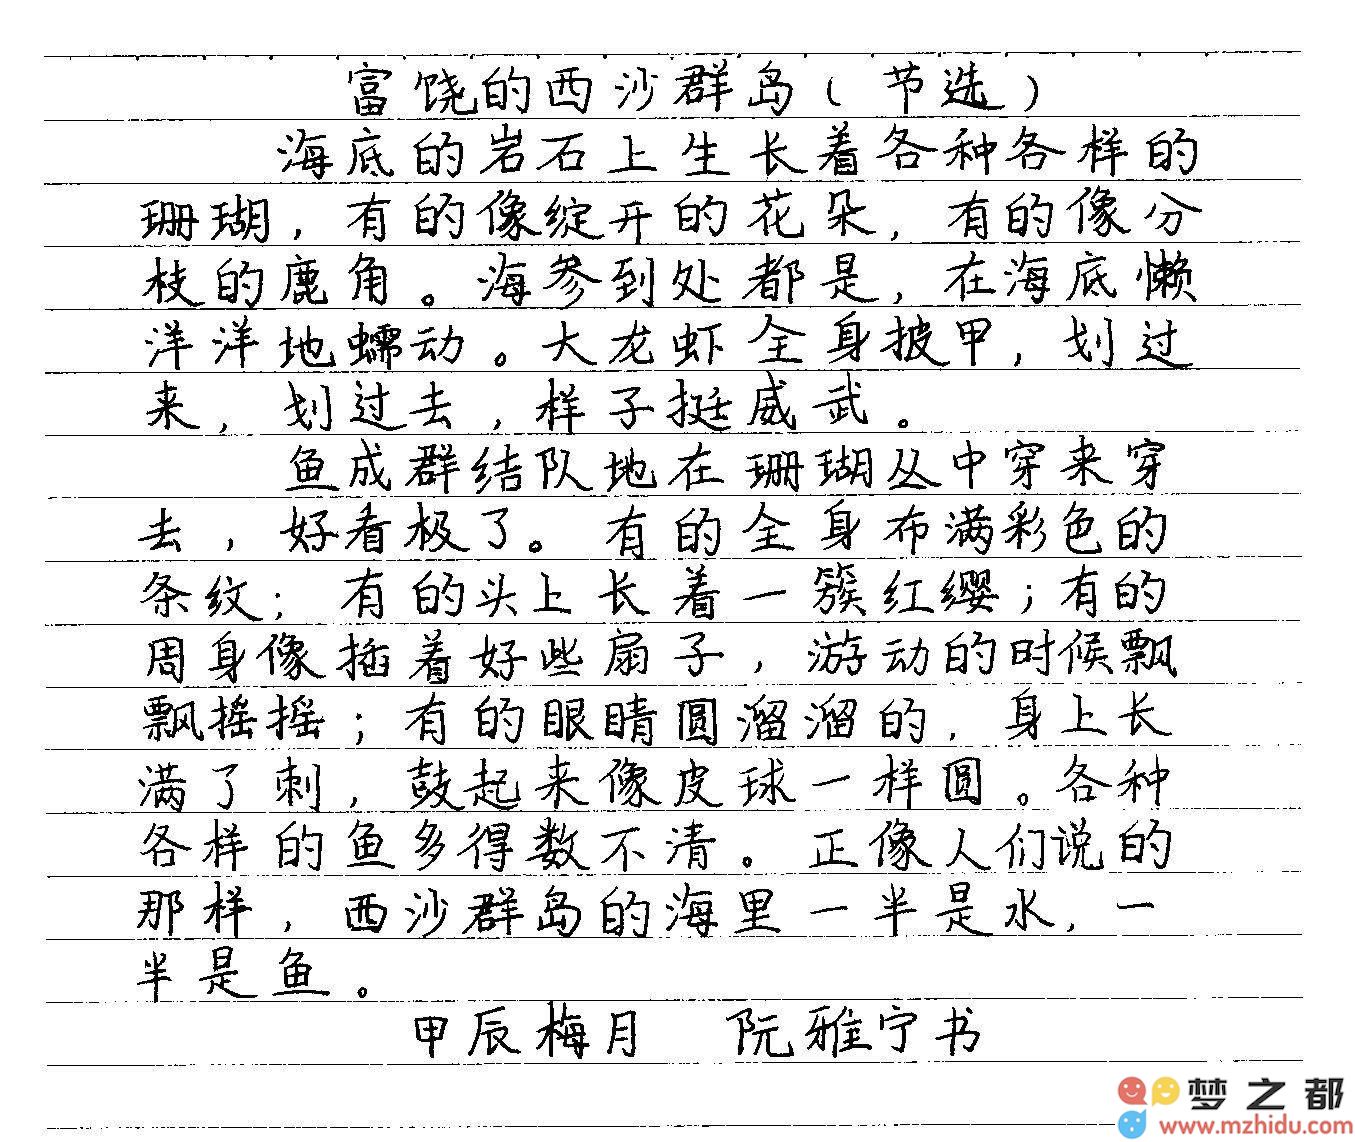 富饶的西沙群岛(节选)
海底的岩石上生长着各种各样的
珊瑚,有的像绽开的花朵,有的像分
枝的鹿角。海参到处都是,在海底懒
洋洋地蠕动。大龙虾全身披甲,划过
来,划过去,样子挺威武。
鱼成群结队地在珊瑚丛中穿来穿
去,好看极了。有的全身布满彩色的
条纹;有的头上长着一簇红缨;有的
周身像插着好些扇子,游动的时候飘
飘摇摇;有的眼睛圆溜溜的,身上长
满了刺,鼓起来像皮球一样圆。各种
各样的鱼多得数不清。正像人们说的
那样,西沙群岛的海里一半是水,一
半是鱼。
甲辰梅月 阮雅宁书
梦之都
www.mzhidu.com